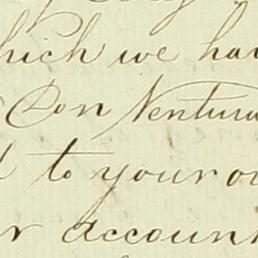 which we hav
Don Ventura
to your ow
r account